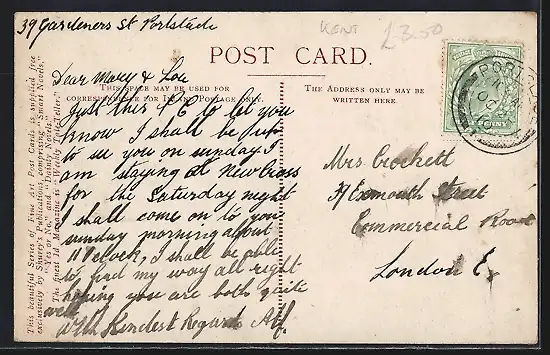 39 Gardeners St Portslade
KENT
£3.50
POST CARD.
THIS SPACE MAY BE USED FOR
CORRESPONDENCE FOR INLAND POSTAGE ONLY.
THE ADDRESS ONLY MAY BE
WRITTEN HERE.
This beautiful Series of Fine Art Post Cards is supplied free
exclusively by Shurey's Publications, comprising "Smart Novels,"
"Yes or No," and "Dainty Novels."
The finest 1d. Magazine is Weekly Tale-Teller."
Dear Mary & Lou
Just this P C to let you
know I shall be up
to see you on sunday I
am staying at New Cross
for the Saturday night
I shall come on to you
sunday morning about
11 Eleven, I shall be able
to find my way all right
hoping you are both quite
well
With Kindest Regards Alf.
Mrs Crockett
37 Exmouth Street
Commercial Road
London E.
PORTSLADE
OC
PENNY